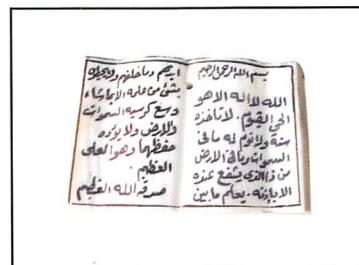 بسم الله الرحمن الرحيم
الله لا اله الا هو
الحي القيوم . لا تاخذه
سنة ولا نوم له ما في
السموات وما في الارض
من ذا الذي يشفع عنده
الا باذنه . يعلم ما بين
ايديهم وما خلفهم ولا يحيطون
بشئ من علمه الا بما شاء
وسع كرسيه السموات
والارض ولا يؤده
حفظهما وهو العلي
العظيم .
صدق الله العظيم